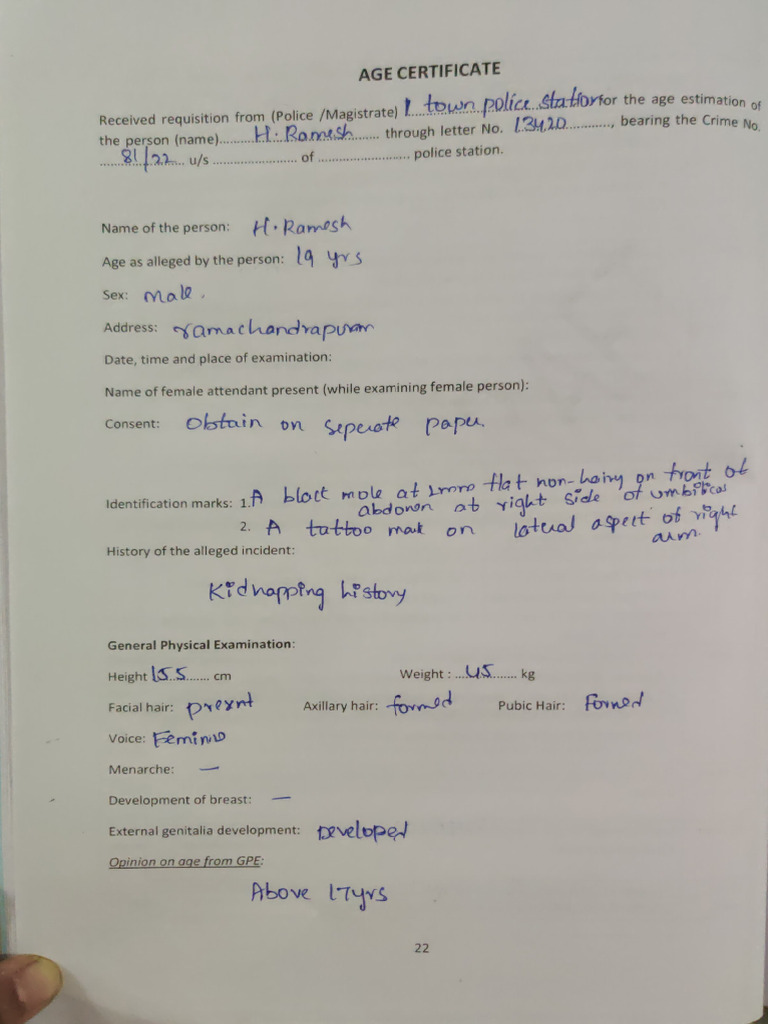 AGE CERTIFICATE
Received requisition from (Police /Magistrate) 1 town police station for the age estimation of
the person (name)..........H. Ramesh....... through letter No. 13420............, bearing the Crime No.
........81/22... u/s ........................ of .......................... police station.
Name of the person: H. Ramesh
Age as alleged by the person: 19 yrs
Sex: male.
Address: ramachandrapuram
Date, time and place of examination:
Name of female attendant present (while examining female person):
Consent: Obtain on seperate paper.
Identification marks: 1. A black mole at 2mm flat non-hairy on front of
abdomen at right side of umbilicus
2. A tattoo mark on lateral aspect of right
arm.
History of the alleged incident:
Kidnapping history
General Physical Examination:
Height 155....... cm Weight : ...45....... kg
Facial hair: present Axillary hair: formed Pubic Hair: Formed
Voice: Feminine
Menarche: —
Development of breast: —
External genitalia development: Developed
Opinion on age from GPE:
Above 17yrs
22